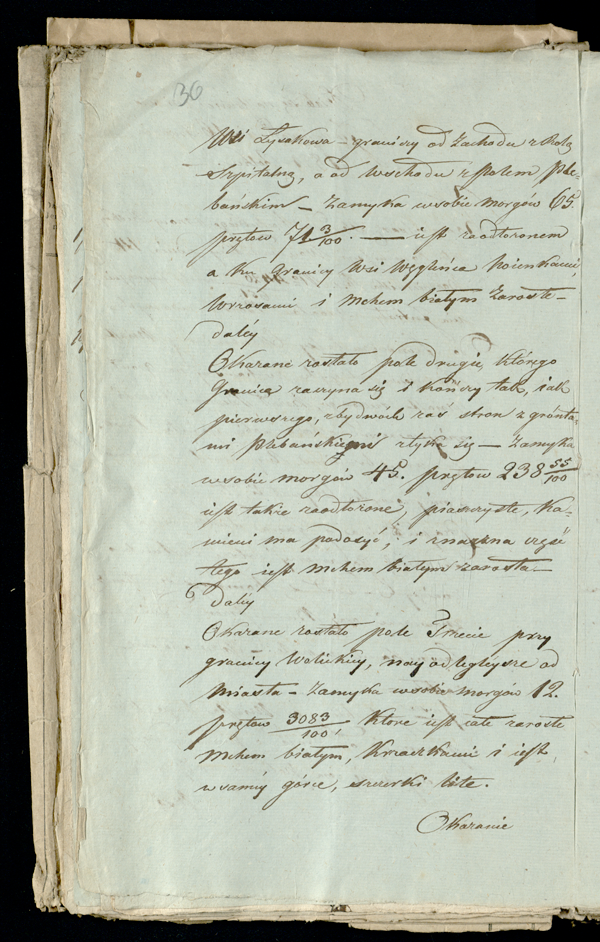 36
Wsi Łysakowa – graniczy od Zachodu z Rolą
Szpitalną, a od Wschodu z Polem Ple-
bańskim – Zamyka w sobie morgów 65.
prętow 71 3/100. — iest zaodłożonem
a ku Granicy Wsi Węglińca Sosenkami
Wrzosami i Mchem białym Zarosłe –
daley
Okazane zostało pole drugie, którego
Granica zaczyna się i kończy tak, iak
pierwszego, z bydwóch zaś stron z grónta-
mi Plebańskiemi styka się – Zamyka
w sobie morgów 45. prętow 238 55/100
iest także zaodłożone, piasczyste, Ka-
mieni ma podosyć, i znaczna część
tego iest Mchem białym zarosła –
daley
Okazane zostało pole Trzecie przy
granicy Wolickiey, nayodlegleysze od
Miasta – Zamyka w sobie morgów 12.
prętow 3083/100 Ktore iest całe zarosłe
Mchem białym, Krzaczkami i iest
w samey górze, szczerki liste.
Okazanie